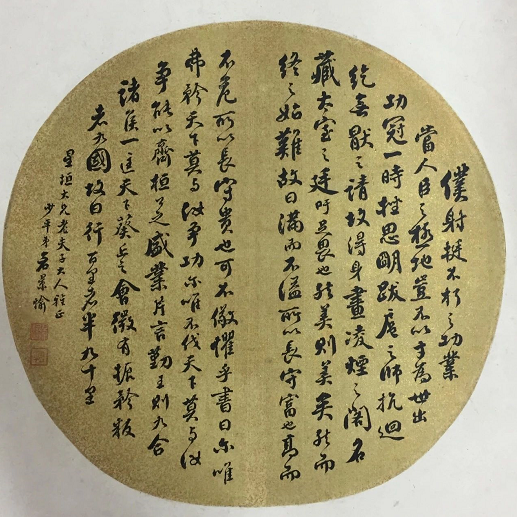 僕射挺不朽之功業
當人臣之極地豈不以才為世出
功冠一時挫思明跋扈之師抗迴
紇無猒之請故得身畫凌煙之閣名
藏太室之廷吁足畏也然美則美矣然而
終之始難故曰滿而不溢所以長守富也高而
不危所以長守貴也可不儆懼乎書曰尔唯
弗矜天下莫与汝爭功尔唯不伐天下莫与汝
爭能以齊桓之盛業片言勤王則九合
諸侯一匡天下葵丘之會微有振矜叛
者九國故曰行百里者半九十里
星垣大兄老夫子大人雅正
少平弟景愉